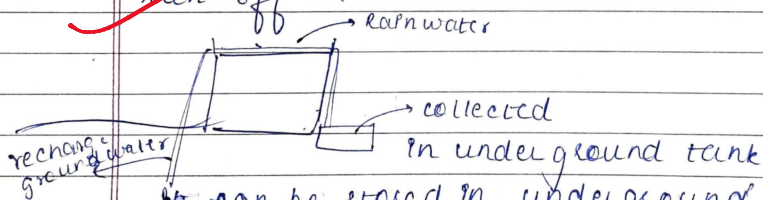 off
Rainwater
collected
in underground tank
recharge
groundwater
can be stored in underground